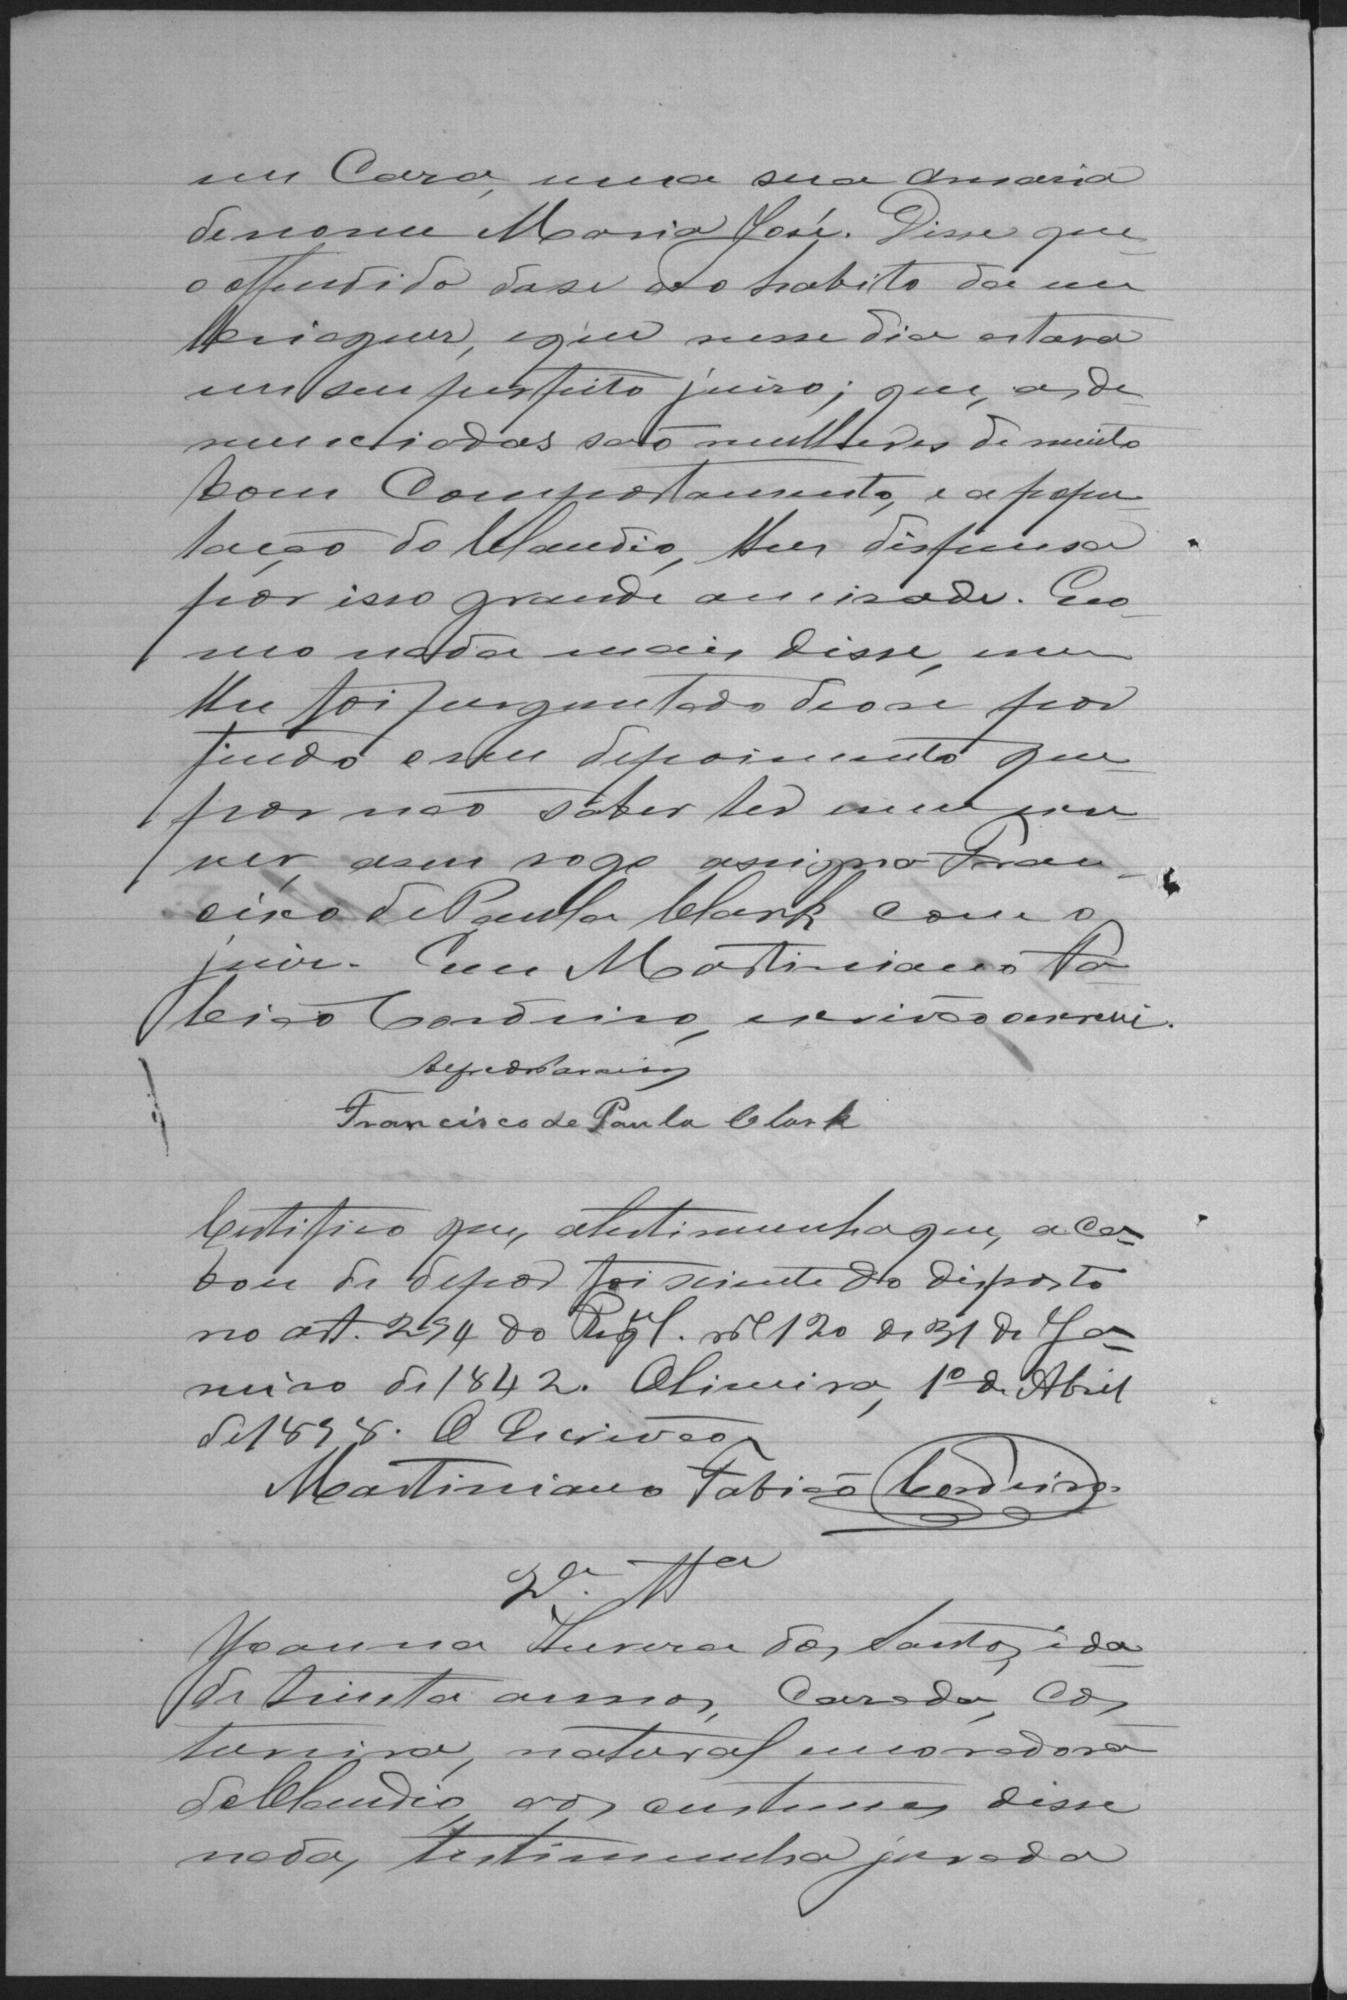 em Casa, uma sua amasia
de nome Maria José. Disse que
o offendido dase ao habito da em
briaguez, e que nesse dia estava
em seu perfeito juiso; que, as de
nunciadas saõ mulheres de muito
bom Comportamento, e a popu
laçaõ do Claudio, lhes dispensa
por isso grande amisade. E co
mo nada mais disse, nem
lhe foi perguntado deose por
findo e seu depoimento que
por naõ saber ler nem escre
ver, a seu rogo assigna Fran
cisco de Paula Clark com o
juiz. Eu Martiniano Fa
biaõ Cordeiro, escrivaõ o escrevi.
Francisco de Paula Clark
Certifico que, a testimunha que, aca
bou de depor foi sciente do disposto
no art. 294 do Regul. nº 120 de 31 de Ja
neiro de 1842. Oliveira, 1º de Abril
de 1898. O Escrivaõ
Martiniano Fabiaõ Cordeiro
2ª. Ttª
Joanna dos Santos, ida
de trinta annos, Casada, cos
tureira, natural moradora
de Claudio, aos custumes disse
nada, testimunha jurada